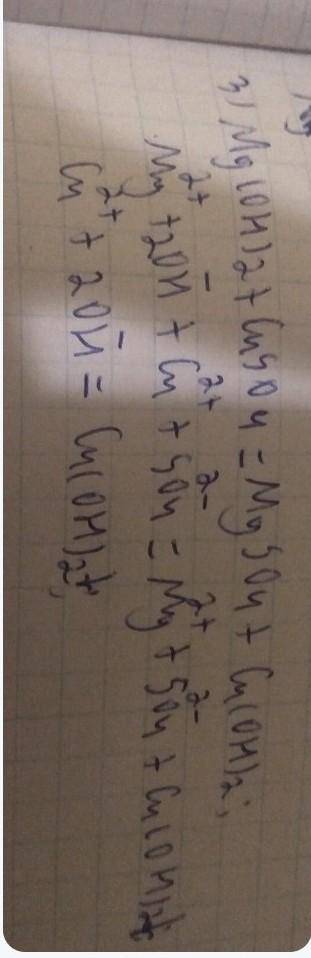 3) Mg(OH)2 + CuSO4 = MgSO4 + Cu(OH)2;
Mg²⁺ + 2OH⁻ + Cu²⁺ + SO4²⁻ = Mg²⁺ + SO4²⁻ + Cu(OH)2↓
Cu²⁺ + 2OH⁻ = Cu(OH)2↓;